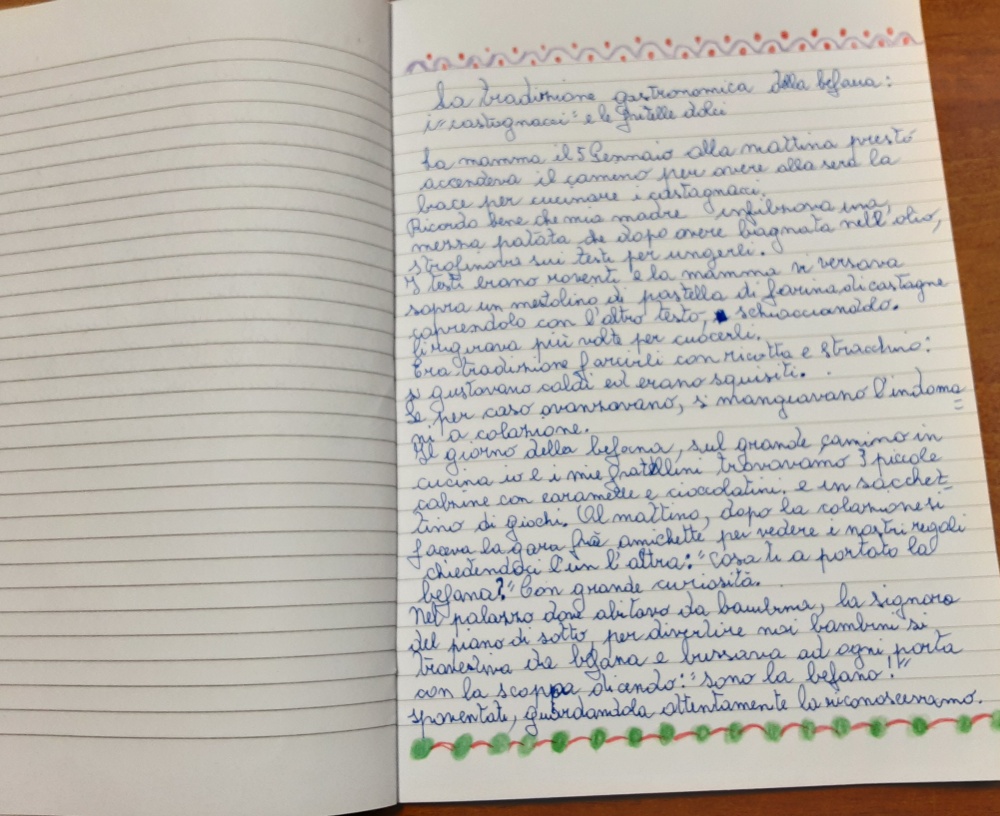 La tradizione gastronomica della befana:
i "castagnacci" e le frittelle dolci
La mamma il 5 Gennaio alla mattina presto
accendeva il camino per avere alla sera la
brace per cucinare i castagnacci.
Ricordo bene che mia madre infilzava una
mezza patata che dopo avere bagnata nell'olio,
strofinava sui testi per ungerli.
I testi erano roventi e la mamma vi versava
sopra un mestolino di pastella di farina di castagne
coprendolo con l'altro testo, schiacciandolo.
li rigirava più volte per cuocerli.
Era tradizione farcirli con ricotta e stracchino:
si gustavano caldi ed erano squisiti.
Se per caso avanzavano, si mangiavano l'indoma=
ni a colazione.
Il giorno della befana, sul grande camino in
cucina io e i miei fratellini trovavamo 3 piccole
calzine con caramelle e cioccolatini e un sacchet
tino di giochi. Al mattino, dopo la colazione si
faceva la gara fra amichette per vedere i nostri regali
chiedendoci l'un l'altra: "Cosa ti a portato la
befana?" Con grande curiosità.
Nel palazzo dove abitavo da bambina, la signora
del piano di sotto, per divertire noi bambini si
travestiva da befana e bussava ad ogni porta
con la scoppa dicendo: "sono la befana!"
spaventate, guardandola attentamente la riconoscevamo.